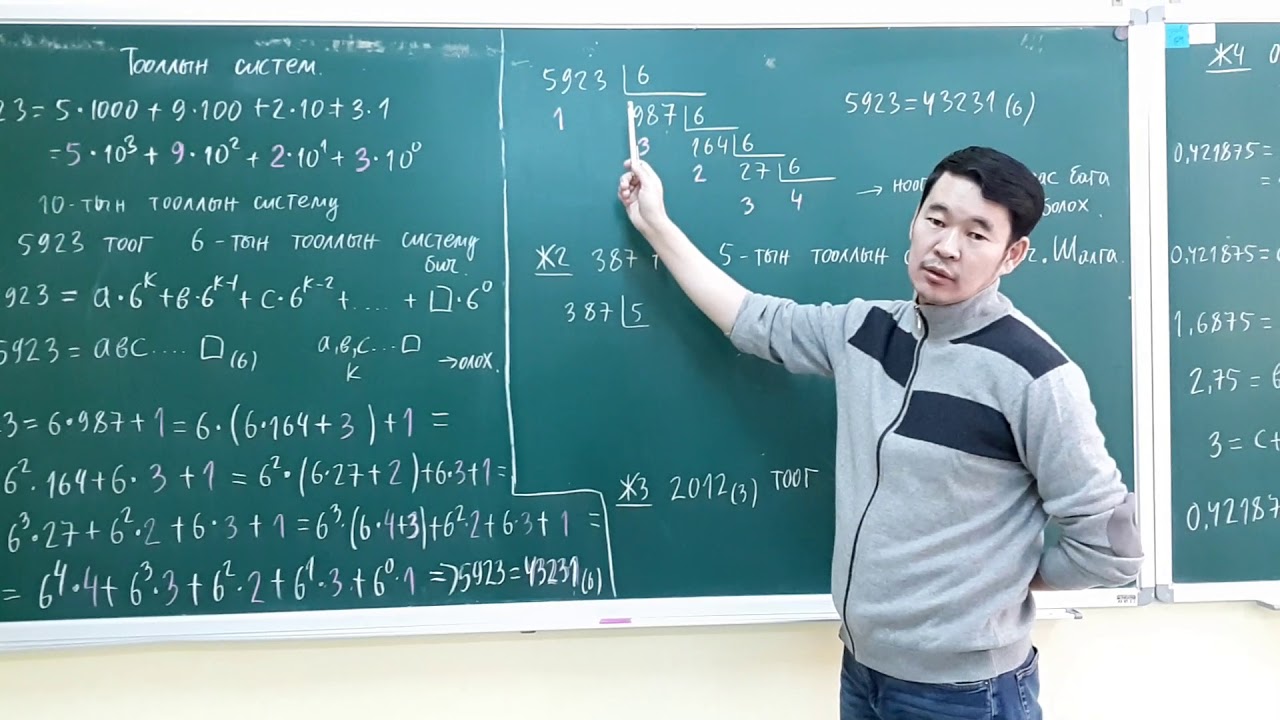 Тооллын систем.
23 = 5·1000 + 9·100 + 2·10 + 3·1
= 5·10³ + 9·10² + 2·10¹ + 3·10⁰
10-тын тооллын системд
5923 тоог 6-тын тооллын системд
бич.
923 = a·6ᵏ + в·6ᵏ⁻¹ + c·6ᵏ⁻² + .... + □·6⁰
5923 = авс .... □(6) а,в,с...□
к →олох.
3 = 6·987 + 1 = 6·(6·164 + 3) + 1 =
6²·164 + 6·3 + 1 = 6²·(6·27 + 2) + 6·3 + 1 =
6³·27 + 6²·2 + 6·3 + 1 = 6³·(6·4+3) + 6²·2 + 6·3 + 1 =
= 6⁴·4 + 6³·3 + 6²·2 + 6¹·3 + 6⁰·1 ⇒ 5923 = 43231(6)
5923 6
1 987 6
3 164 6
2 27 6
3 4
5923 = 43231(6)
→ бага
болох.
Ж2 387 5-тын тооллын Шалга.
387 5
Ж3 2012(3) тоог
Ж4
0,421875 =
=
0,421875 =
1,6875 =
2,75 =
3 =
0,42187